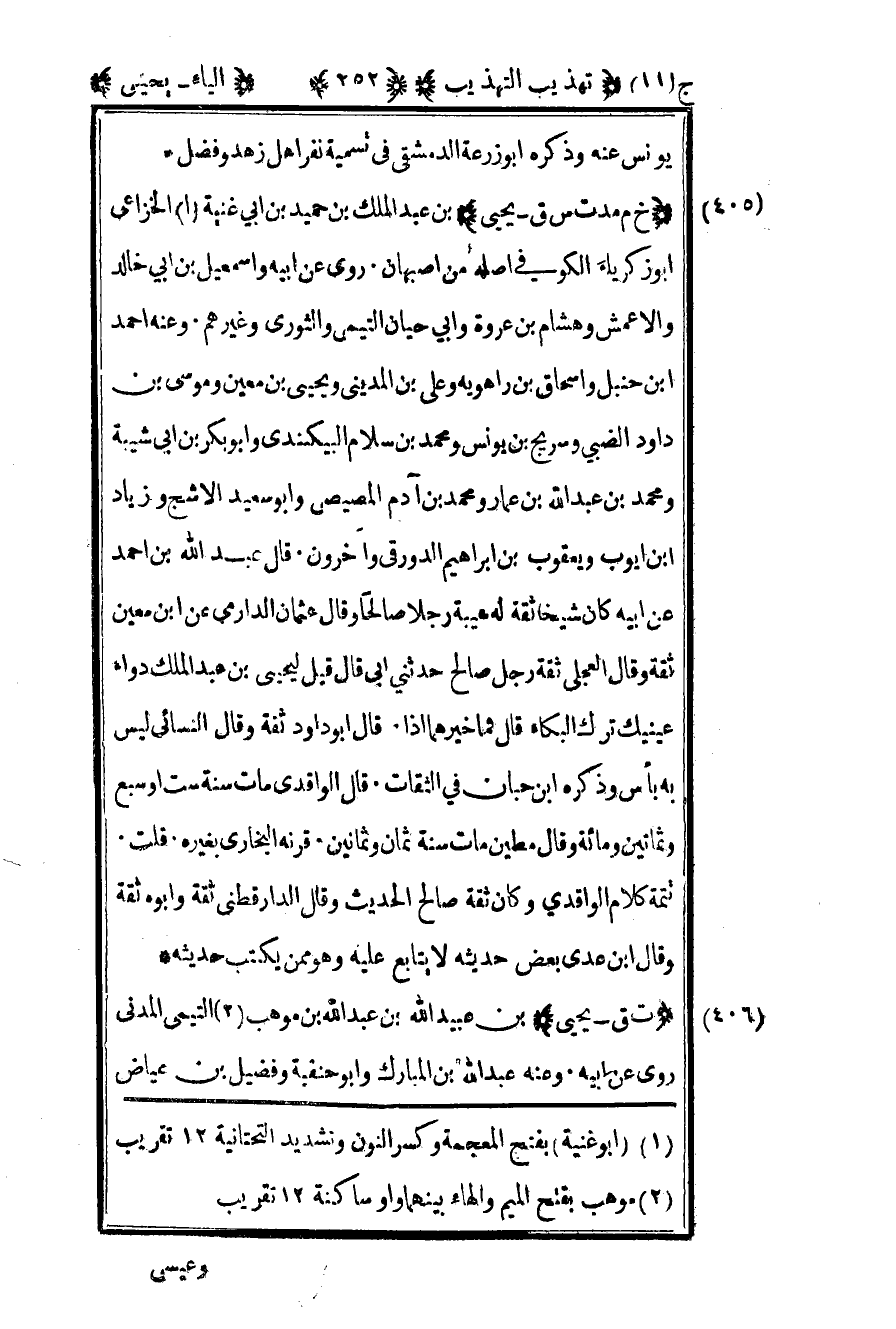 ج(١١) ﴿ تهذيب التهذيب ﴾ ﴿٢٥٢﴾ ﴿ الياء ـ يحيى ﴾
يونس عنه وذكره ابوزرعة الدمشقى فى تسمية نفر اهل زهد وفضل *
(٤٠٥) ﴿خ م مدت س ق ـ يحيى﴾ بن عبد الملك بن حميد بن ابي غنية (١) الخزاعى
ابوزكرياء الكوفي اصله من اصبهان ٠ روى عن ابيه واسمعيل بن ابي خالد
والاعمش وهشام بن عروة وابي حيان التيمى والثورى وغيرهم ٠ وعنه احمد
ابن حنبل واسحاق بن راهويه وعلى بن المدينى ويحيى بن معين وموسى بن
داود الضبي وسريج بن يونس ومحمد بن سلام البيكندى وابوبكر بن ابى شيبة
ومحمد بن عبدالله بن عمار ومحمد بن آدم المصيصى وابوسعيد الاشج وزياد
ابن ايوب ويعقوب بن ابراهيم الدورقى وآخرون ٠ قال عبد الله بن احمد
عن ابيه كان شيخا ثقة له هيبة رجلا صالحا وقال عثمان الدارمى عن ابن معين
ثقة وقال العجلى ثقة رجل صالح حدثني ابى قال قيل ليحيى بن عبد الملك دواء
عينيك ترك البكاء قال فما خيرهما اذا ٠ قال ابوداود ثقة وقال النسائى ليس
به بأس وذكره ابن حبان في الثقات ٠ قال الواقدى مات سنة ست اوسبع
وثمانين ومائة وقال مطين مات سنة ثمان وثمانين ٠ قرنه البخارى بغيره ٠ قلت ٠
تتمة كلام الواقدي وكان ثقة صالح الحديث وقال الدارقطنى ثقة وابوه ثقة
وقال ابن عدى بعض حديثه لا يتابع عليه وهو ممن يكتب حديثه *
(٤٠٦) ﴿ت ق ـ يحيى﴾ بن عبيدالله بن عبدالله بن موهب (٢) التيمى المدنى
روى عن ابيه ٠ وعنه عبدالله بن المبارك وابوحنيفة وفضيل بن عياض
(١) (ابوغنية) بفتح المعجمة وكسر النون وتشديد التحتانية ١٢ تقريب
(٢) موهب بفتح الميم والهاء بينهما واو ساكنة ١٢ تقريب
وعيسى